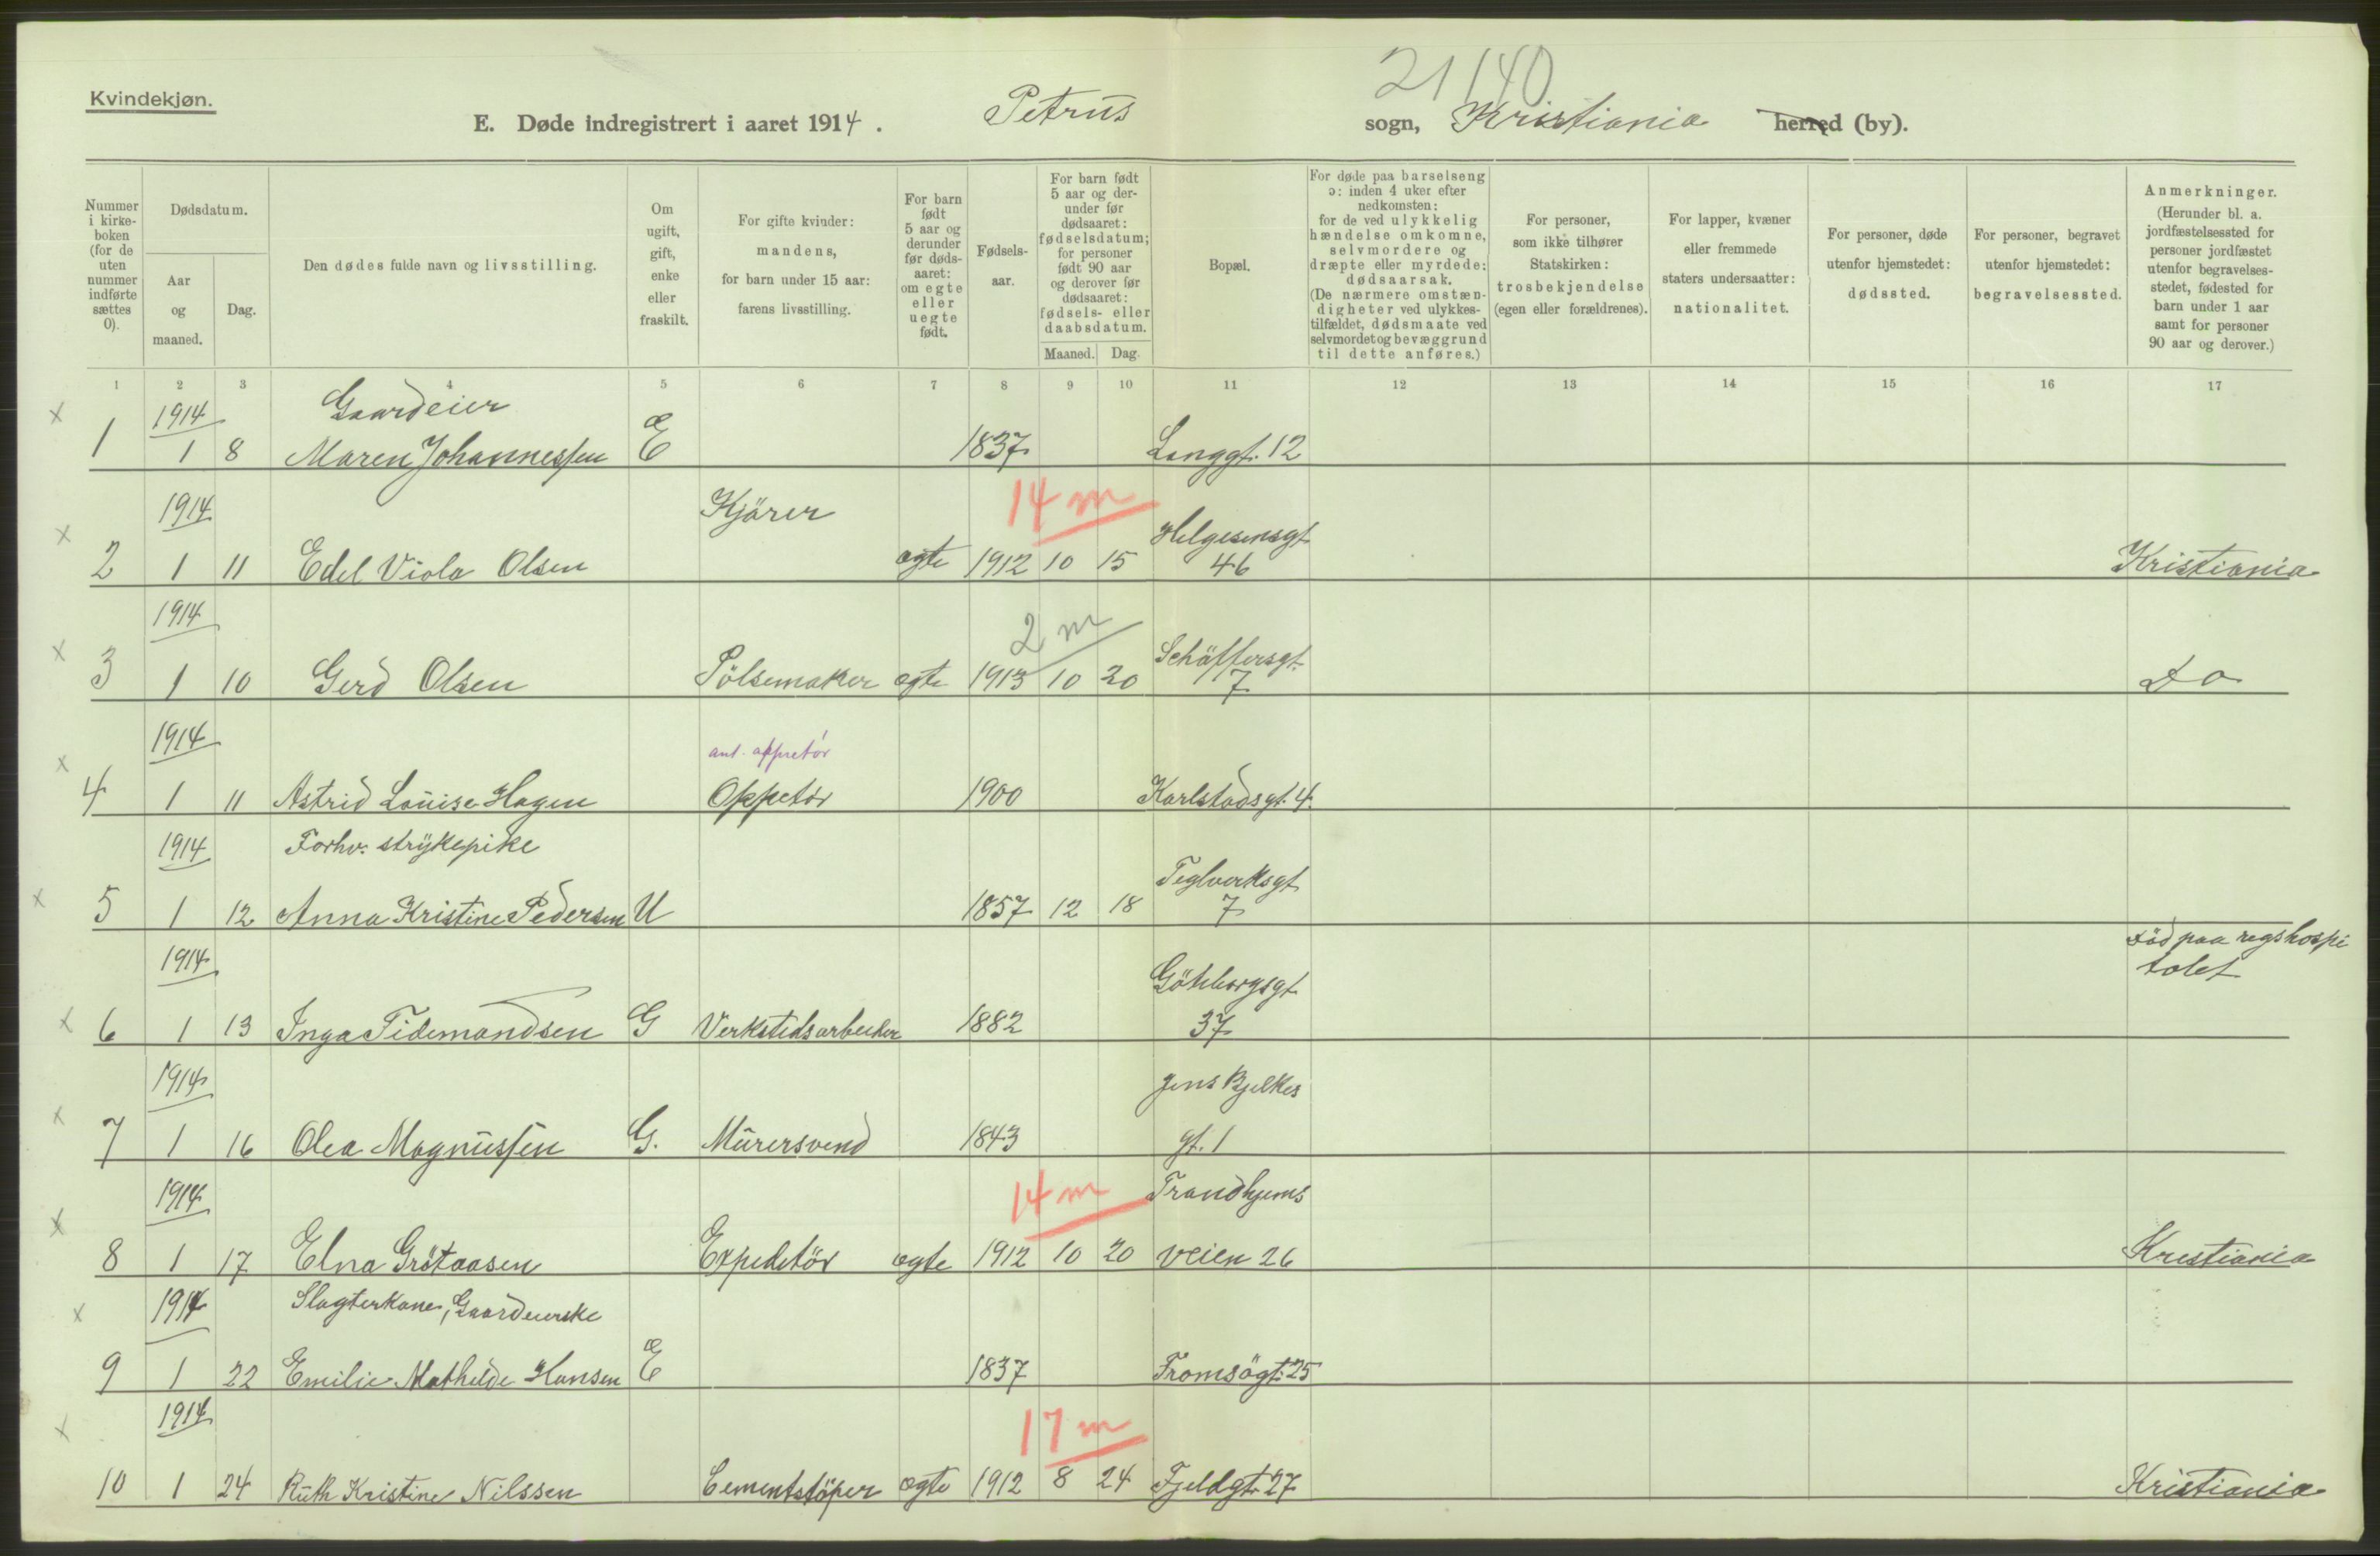 21 140
Kvindekjøn.
E. Døde indregistrert i aaret 1914. Petrus sogn, Kristiania herred (by).
Nummer i kirke-boken (for de uten nummer indførte sættes 0).
Dødsdatum.
Aar og maaned.
Dag.
Den dødes fulde navn og livsstilling.
Om ugift, gift, enke eller fraskilt.
For gifte kvinder: mandens, for barn under 15 aar: farens livsstilling.
For barn født 5 aar og derunder før døds-aaret: om egte eller uegte født.
Fødsels-aar.
For barn født 5 aar og der-under før dødsaaret: fødselsdatum; for personer født 90 aar og derover før dødsaaret: fødsels- eller daabsdatum.
Maaned. Dag.
Bopæl.
For døde paa barselseng ɔ: inden 4 uker efter nedkomsten: for de ved ulykkelig hændelse omkomne, selvmordere og dræpte eller myrdede: dødsaarsak. (De nærmere omstæn-digheter ved ulykkes-tilfældet, dødsmaate ved selvmordet og bevæggrund til dette anføres.)
For personer, som ikke tilhører Statskirken: trosbekjendelse (egen eller forældrenes).
For lapper, kvæner eller fremmede staters undersaatter: nationalitet.
For personer, døde utenfor hjemstedet: dødssted.
For personer, begravet utenfor hjemstedet: begravelsessted.
Anmerkninger. (Herunder bl. a. jordfæstelsessted for personer jordfæstet utenfor begravelses-stedet, fødested for barn under 1 aar samt for personer 90 aar og derover.)
1 2 3 4 5 6 7 8 9 10 11 12 13 14 15 16 17
x 1914 Gaardeier
1 1 8 Maren Johannessen E 1837 Langgt. 12
x 1914 Kjörer 14 m Helgesensgt
2 1 11 Edel Viola Olsen egte 1912 10 15 46 Kristiania
x 1914 2 m Schäffersgt.
3 1 10 Gerd Olsen Pölsemaker egte 1913 10 20 7 Do
x 1914 ant. appretör
4 1 11 Astrid Louise Hagen Oppetör 1900 Karlstadsgt. 4
x 1914 Forhv. strykepike Teglverksgt
5 1 12 Anna Kristine Pedersen U 1857 12 18 7
1914 Göteborgsgt död paa rigshospi
talet
x 6 1 13 Inga Tidemandsen G Verkstedsarbeider 1882 37
x 1914 Jens Bjelkes
7 1 16 Olea Magnussen G. Murersvend 1843 gt. 1
x 1914 14 m Trondhjems
8 1 17 Elna Grötaasen Expeditör egte 1912 10 20 veien 26 Kristiania
x 1914 Slagterkone, Gaardeierske
9 1 22 Emilie Mathilde Hansen E 1837 Tromsögt. 25
x 1914 17 m
10 1 24 Ruth Kristine Nilssen Cementstöper egte 1912 8 24 Fjeldgt. 27 Kristiania